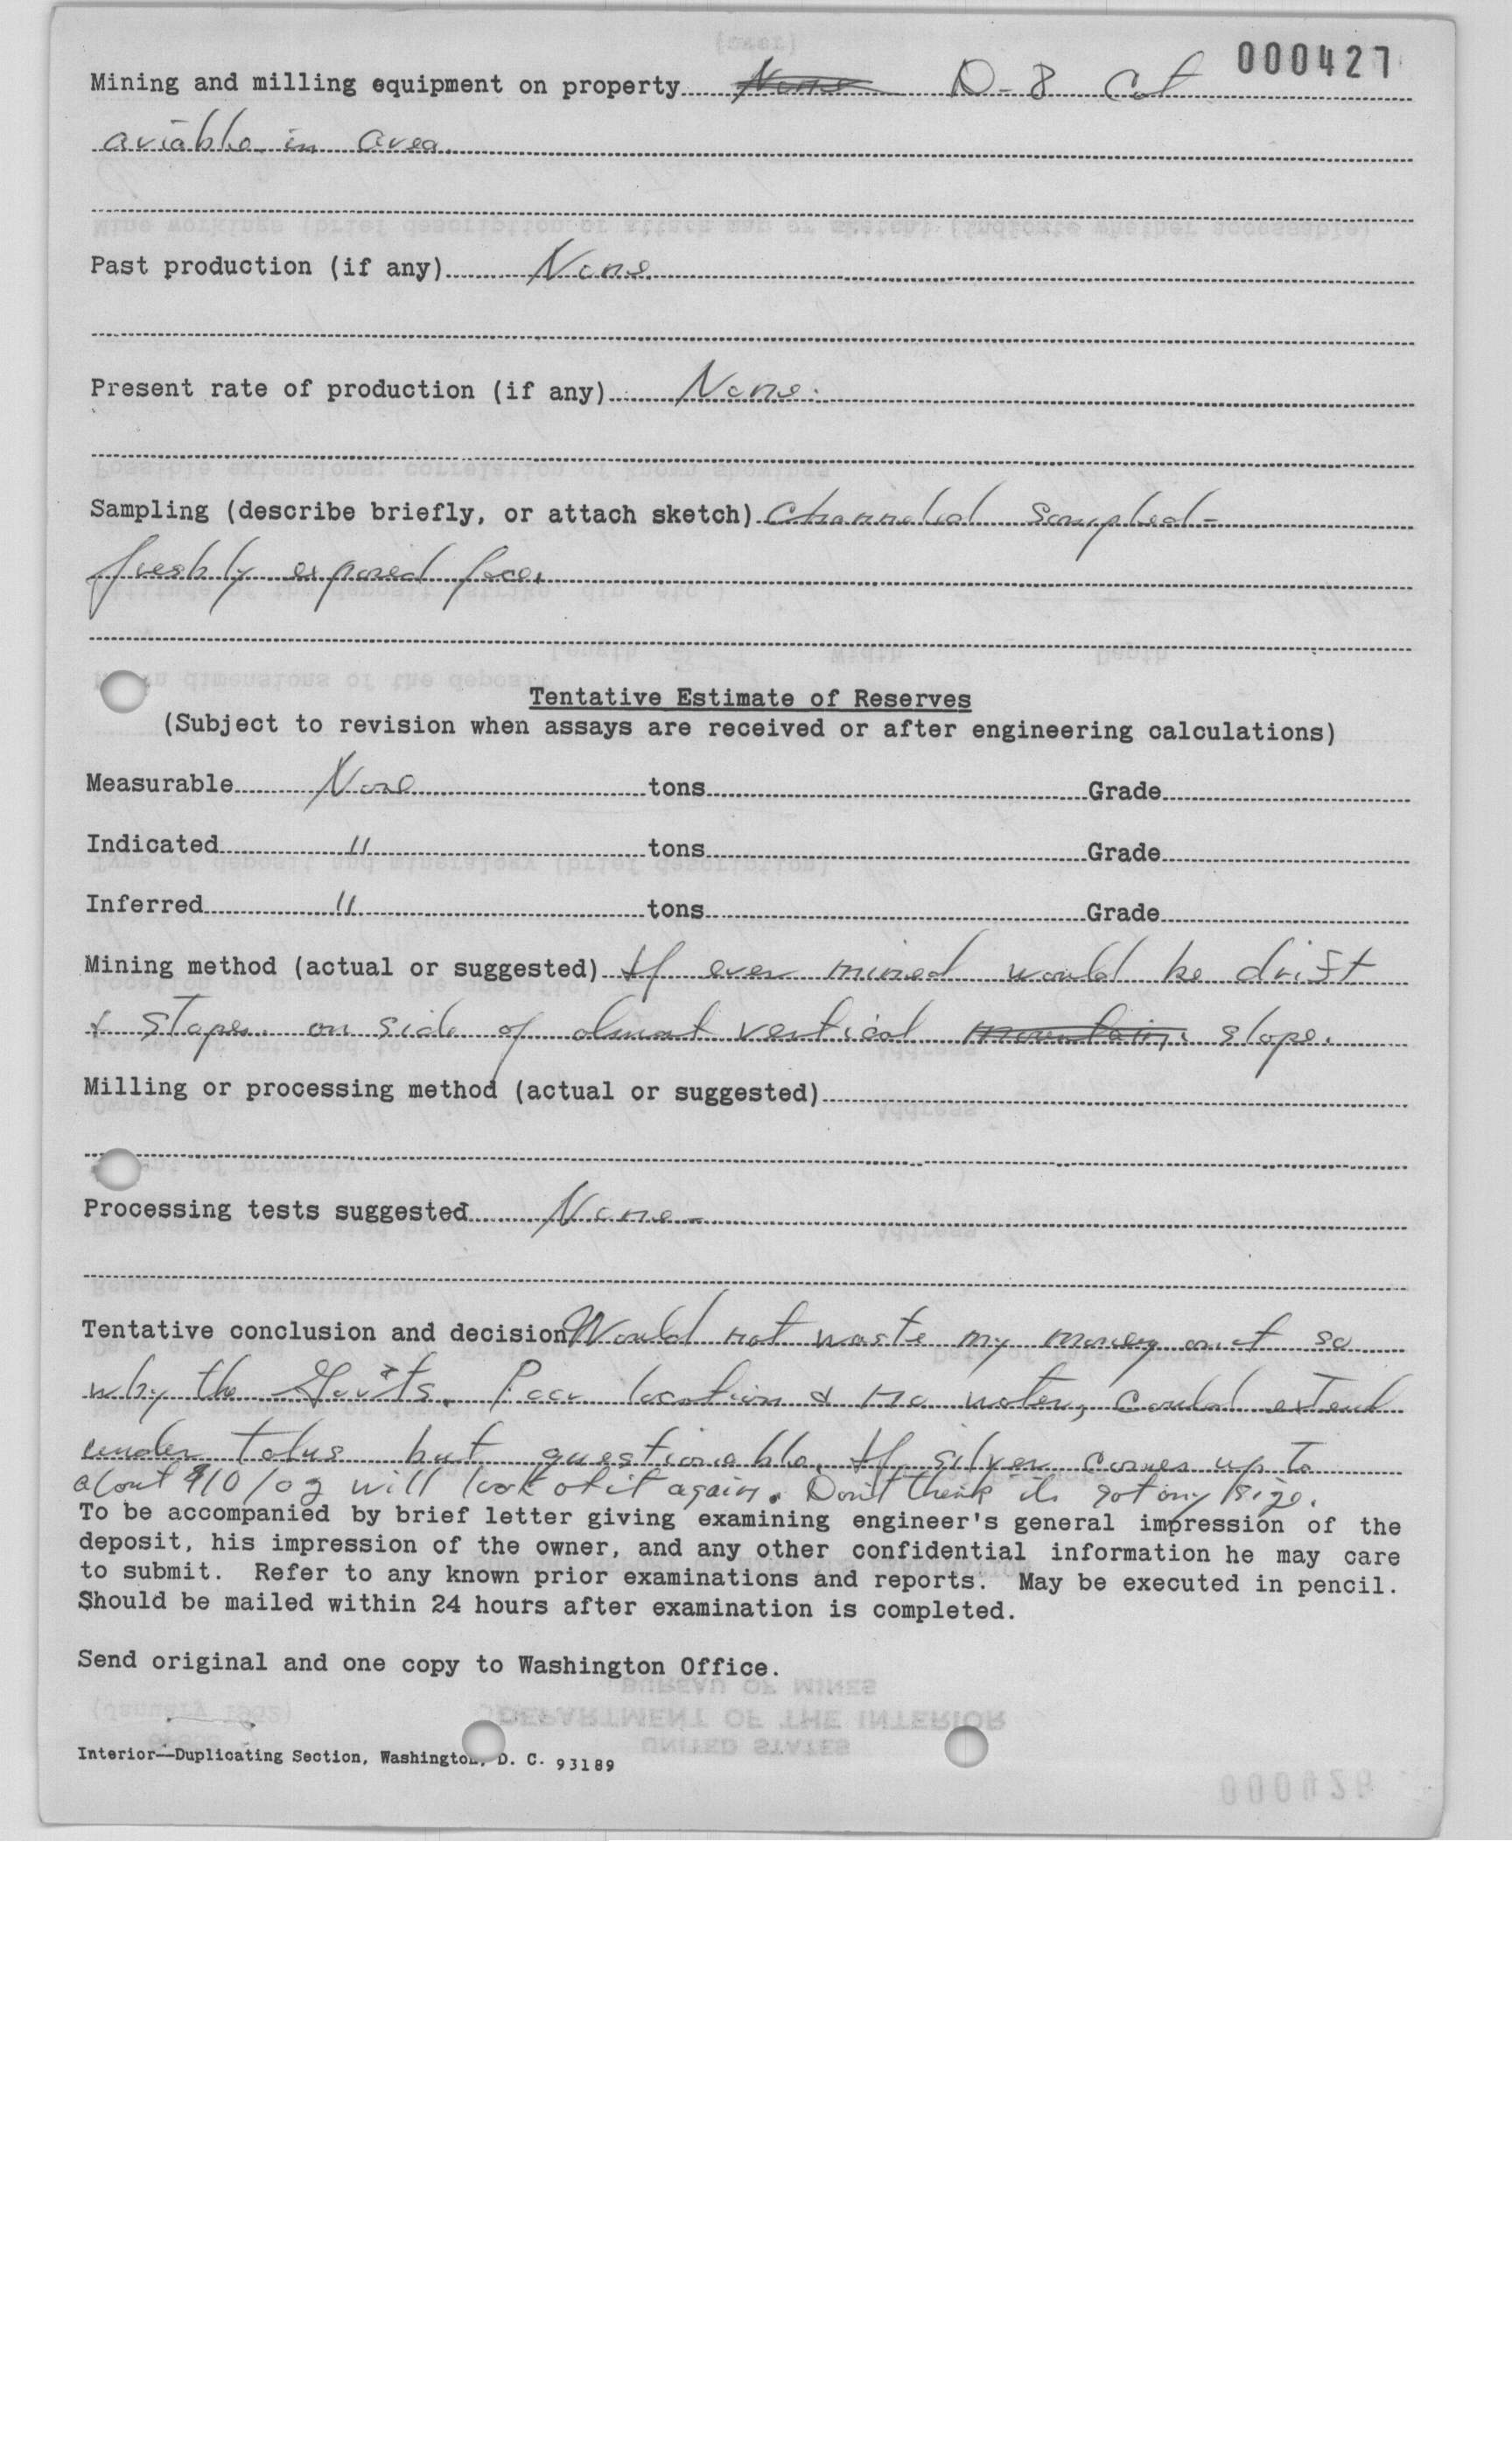 000427
Mining and milling equipment on property None D-8 Cat
aviable in area.
Past production (if any) None.
Present rate of production (if any) None.
Sampling (describe briefly, or attach sketch) Channeled sampled-
freshly exposed face.
Tentative Estimate of Reserves
(Subject to revision when assays are received or after engineering calculations)
Measurable None tons Grade
Indicated " tons Grade
Inferred " tons Grade
Mining method (actual or suggested) If ever mined would be drift
& stope on side of almost vertical mountain slope.
Milling or processing method (actual or suggested)
Processing tests suggested None-
Tentative conclusion and decision Would not waste my money on it so
why the Gov'ts. Poor location & no water, could extend
under talus but questionable. If silver comes up to
about $10/oz will look at it again. Don't think its got any size.
To be accompanied by brief letter giving examining engineer's general impression of the
deposit, his impression of the owner, and any other confidential information he may care
to submit. Refer to any known prior examinations and reports. May be executed in pencil.
Should be mailed within 24 hours after examination is completed.
Send original and one copy to Washington Office.
Interior—Duplicating Section, Washington, D. C. 93189